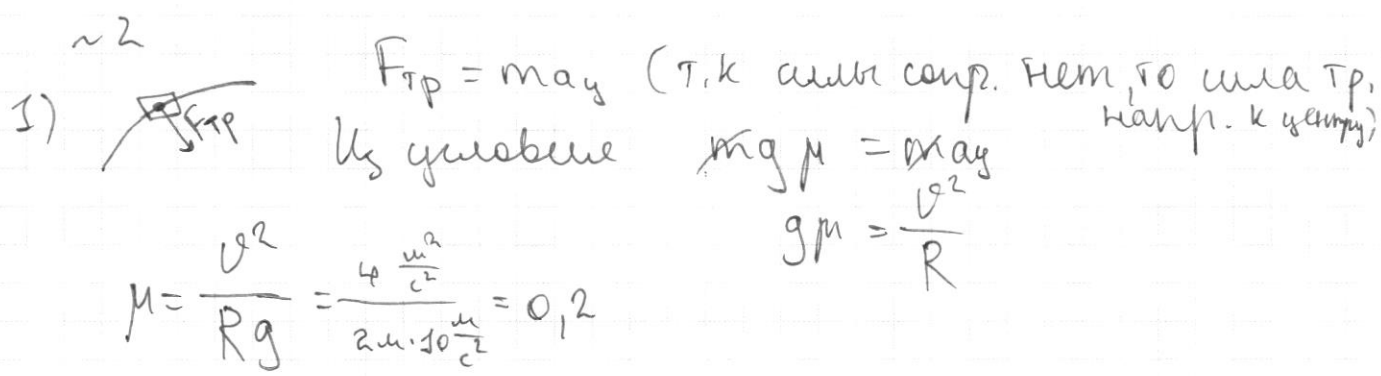 ~2
1) Fтр Fтр = maц (т.к силы сопр. нет, то сила тр. напр. к центру)
Из условие mgμ = maц
gμ = v²/R
μ = v²/(Rg) = (4 м²/с²)/(2м·10 м/с²) = 0,2